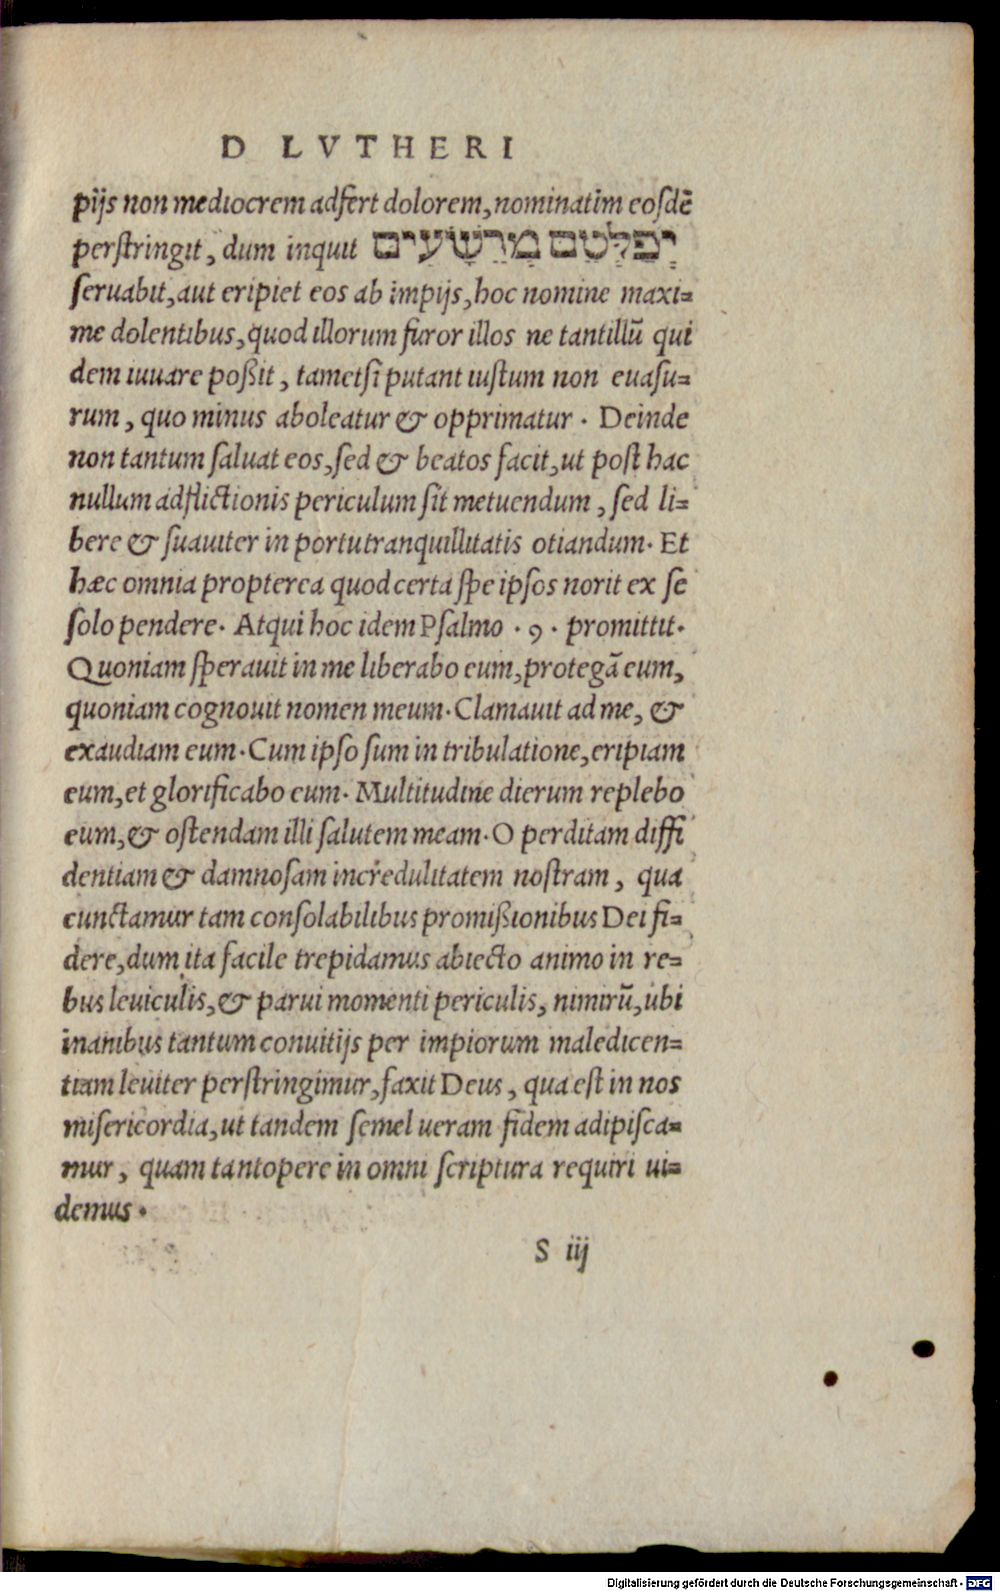 D LVTHERI
pijs non mediocrem adfert dolorem, nominatim eosdē
perstringit, dum inquit יְפַלְּטֵם מֵרְשָׁעִים
seruabit, aut eripiet eos ab impijs, hoc nomine maxi=
me dolentibus, quod illorum furor illos ne tantillū qui
dem iuuare poßit, tametsi putant iustum non euasu=
rum, quo minus aboleatur & opprimatur. Deinde
non tantum saluat eos, sed & beatos facit, ut post hac
nullum adflictionis periculum sit metuendum, sed li=
bere & suauiter in portu tranquillitatis otiandum. Et
hæc omnia propterea quod certa spe ipsos norit ex se
solo pendere. Atqui hoc idem Psalmo .9. promittit.
Quoniam sperauit in me liberabo eum, protegā eum,
quoniam cognouit nomen meum. Clamauit ad me, &
exaudiam eum. Cum ipso sum in tribulatione, eripiam
eum, et glorificabo eum. Multitudine dierum replebo
eum, & ostendam illi salutem meam. O perditam diffi
dentiam & damnosam incredulitatem nostram, qua
cunctamur tam consolabilibus promißionibus Dei fi=
dere, dum ita facile trepidamus abiecto animo in re=
bus leuiculis, & parui momenti periculis, nimirū, ubi
inanibus tantum conuitijs per impiorum maledicen=
tiam leuiter perstringimur, faxit Deus, qua est in nos
misericordia, ut tandem semel ueram fidem adipisca=
mur, quam tantopere in omni scriptura requiri ui=
demus.
S iij
Digitalisierung gefördert durch die Deutsche Forschungsgemeinschaft - DFG